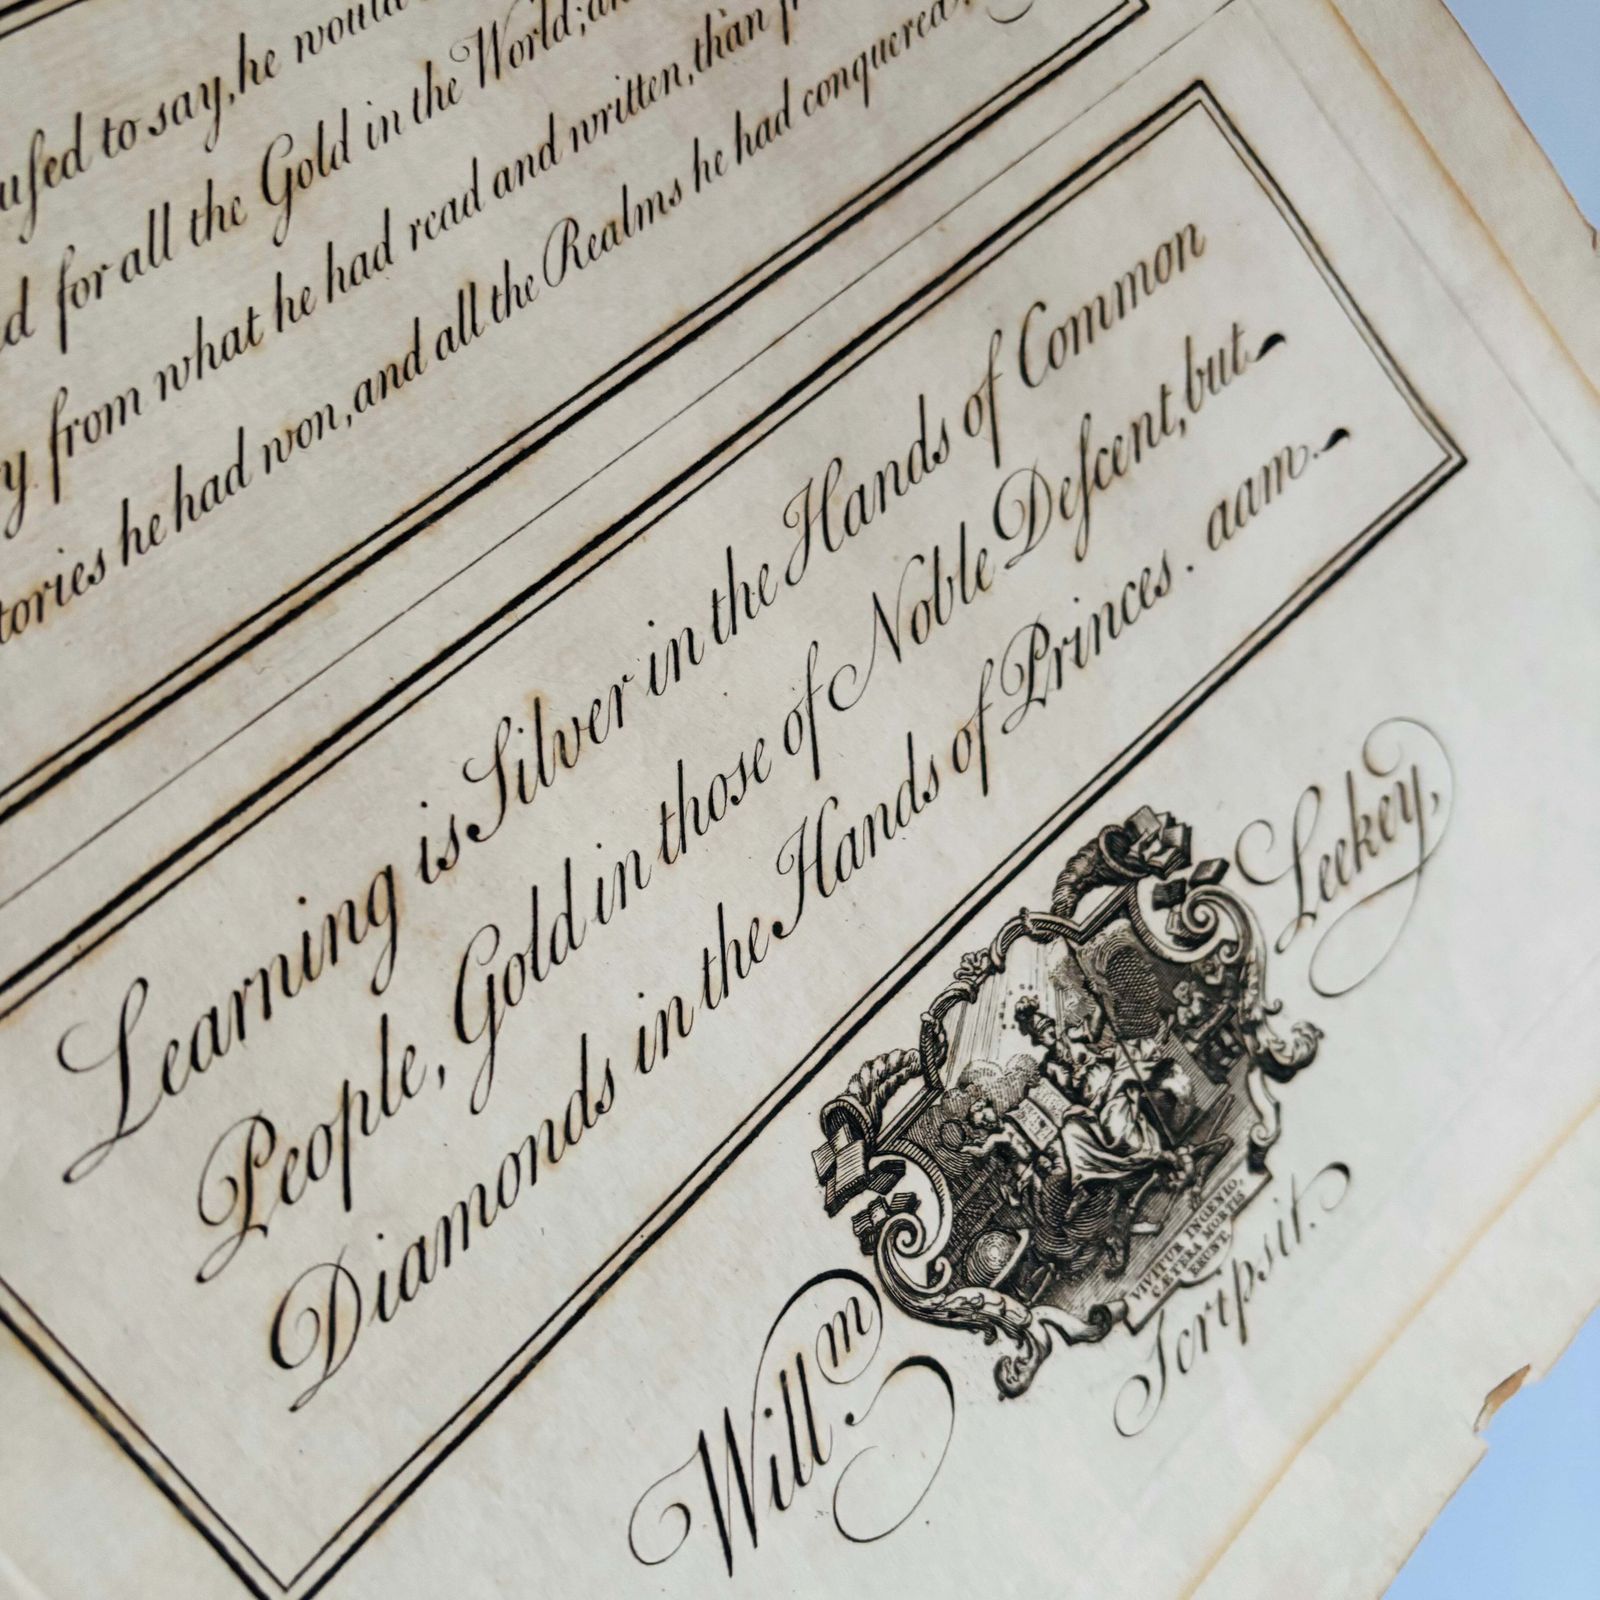 uſed to say, he would
for all the Gold in the World; a
from what he had read and written, than
he had won, and all the Realms he had conquered,
Learning is Silver in the Hands of Common
People, Gold in those of Noble Deſcent, but
Diamonds in the Hands of Princes. aam.
Will m Leekey,
VIVITUR INGENIO,
CÆTERA MORTIS
ERUNT.
Scripsit.